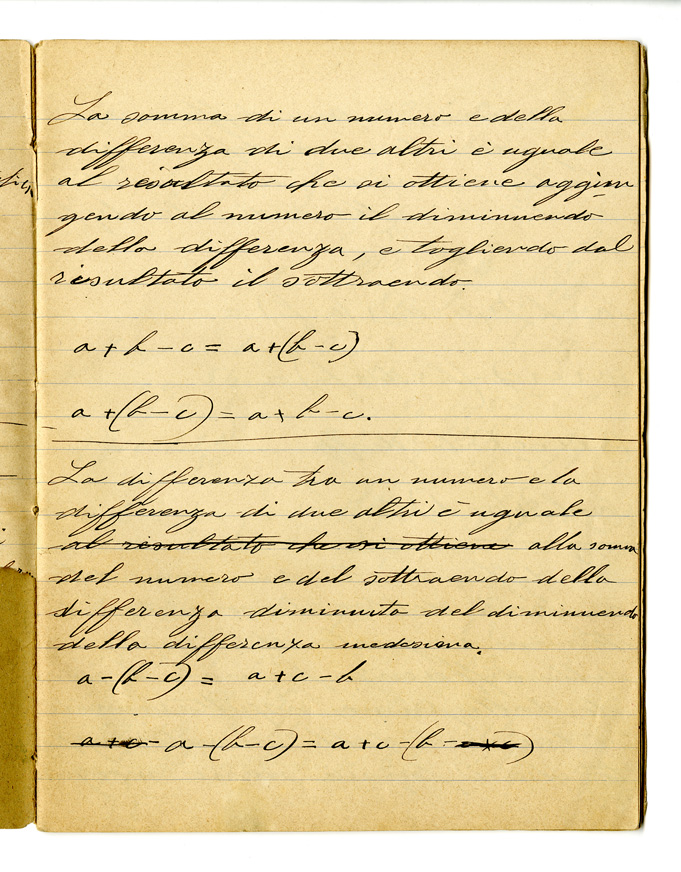 La somma di un numero e della
differenza di due altri è uguale
al risultato che si ottiene aggiun
gendo al numero il diminuendo
della differenza, e togliendo dal
risultato il sottraendo.
a + b - c = a + (b - c)
a + (b - c) = a + b - c.
La differenza tra un numero e la
differenza di due altri è uguale
al risultato che si ottiene alla somma
del numero e del sottraendo della
differenza diminuita del diminuendo
della differenza medesima.
a - (b - c) = a + c - b
a + c - a - (b - c) = a + c - (b - )